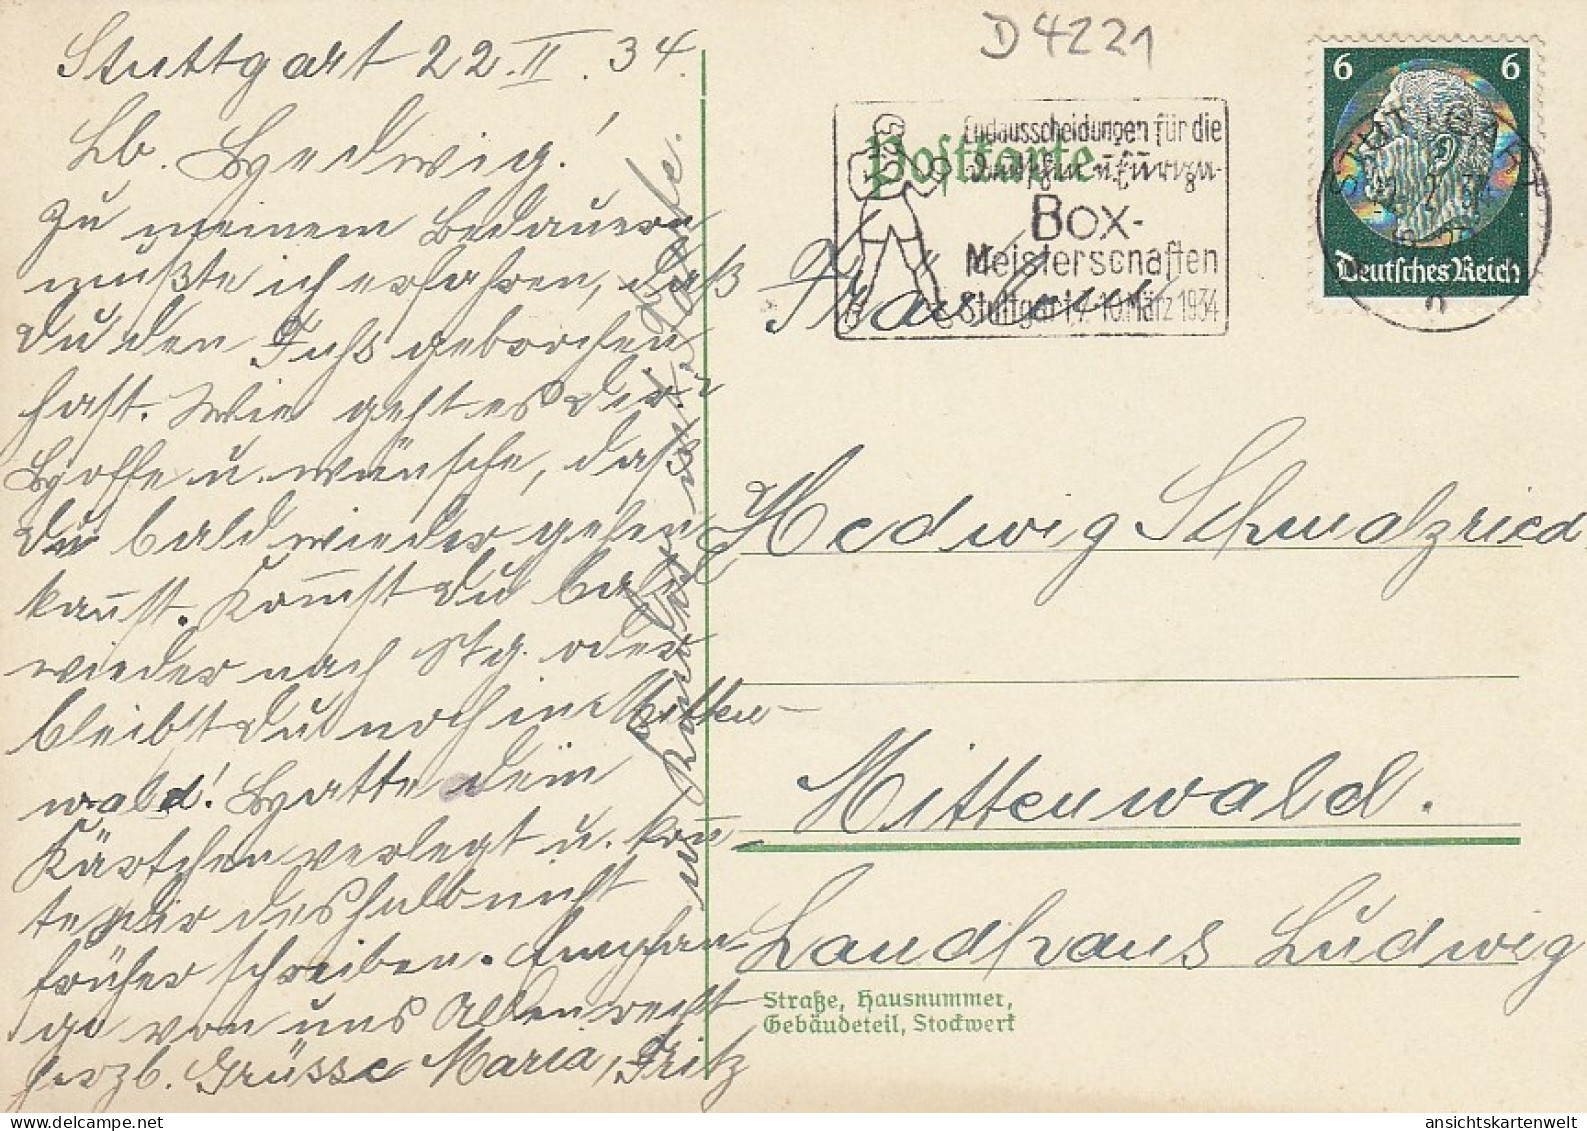 Stuttgart 22.II.34.
Lb. Hedwig!
Zu meinem Bedauern
mußte ich erfahren, daß
Du den Fuß gebrochen
hast. Wie geht es Dir?
Hoffe u. wünsche, daß
Du bald wieder gehen
kannst. Kommst Du bald
wieder nach Stg. oder
bleibst Du noch in Mitten-
wald! Hatte dein
Kärtchen verlegt u. konn-
te Dir deshalb nicht
früher schreiben. Empfan-
ge von uns Allen recht
herzl. Grüsse Maria, Fritz
u. Karl
D 4221
Postkarte
Endausscheidungen für die
Deutschen u. Europa-
BOX-
Meisterschaften
Stuttgart 7.-10. März 1934
6 6
Deutsches Reich
STUTTGART
n
Fräulein
Hedwig Schmalzried
Mittenwald.
Landhaus Ludwig
Straße, Hausnummer,
Gebäudeteil, Stockwerk
ansichtskartenwelt